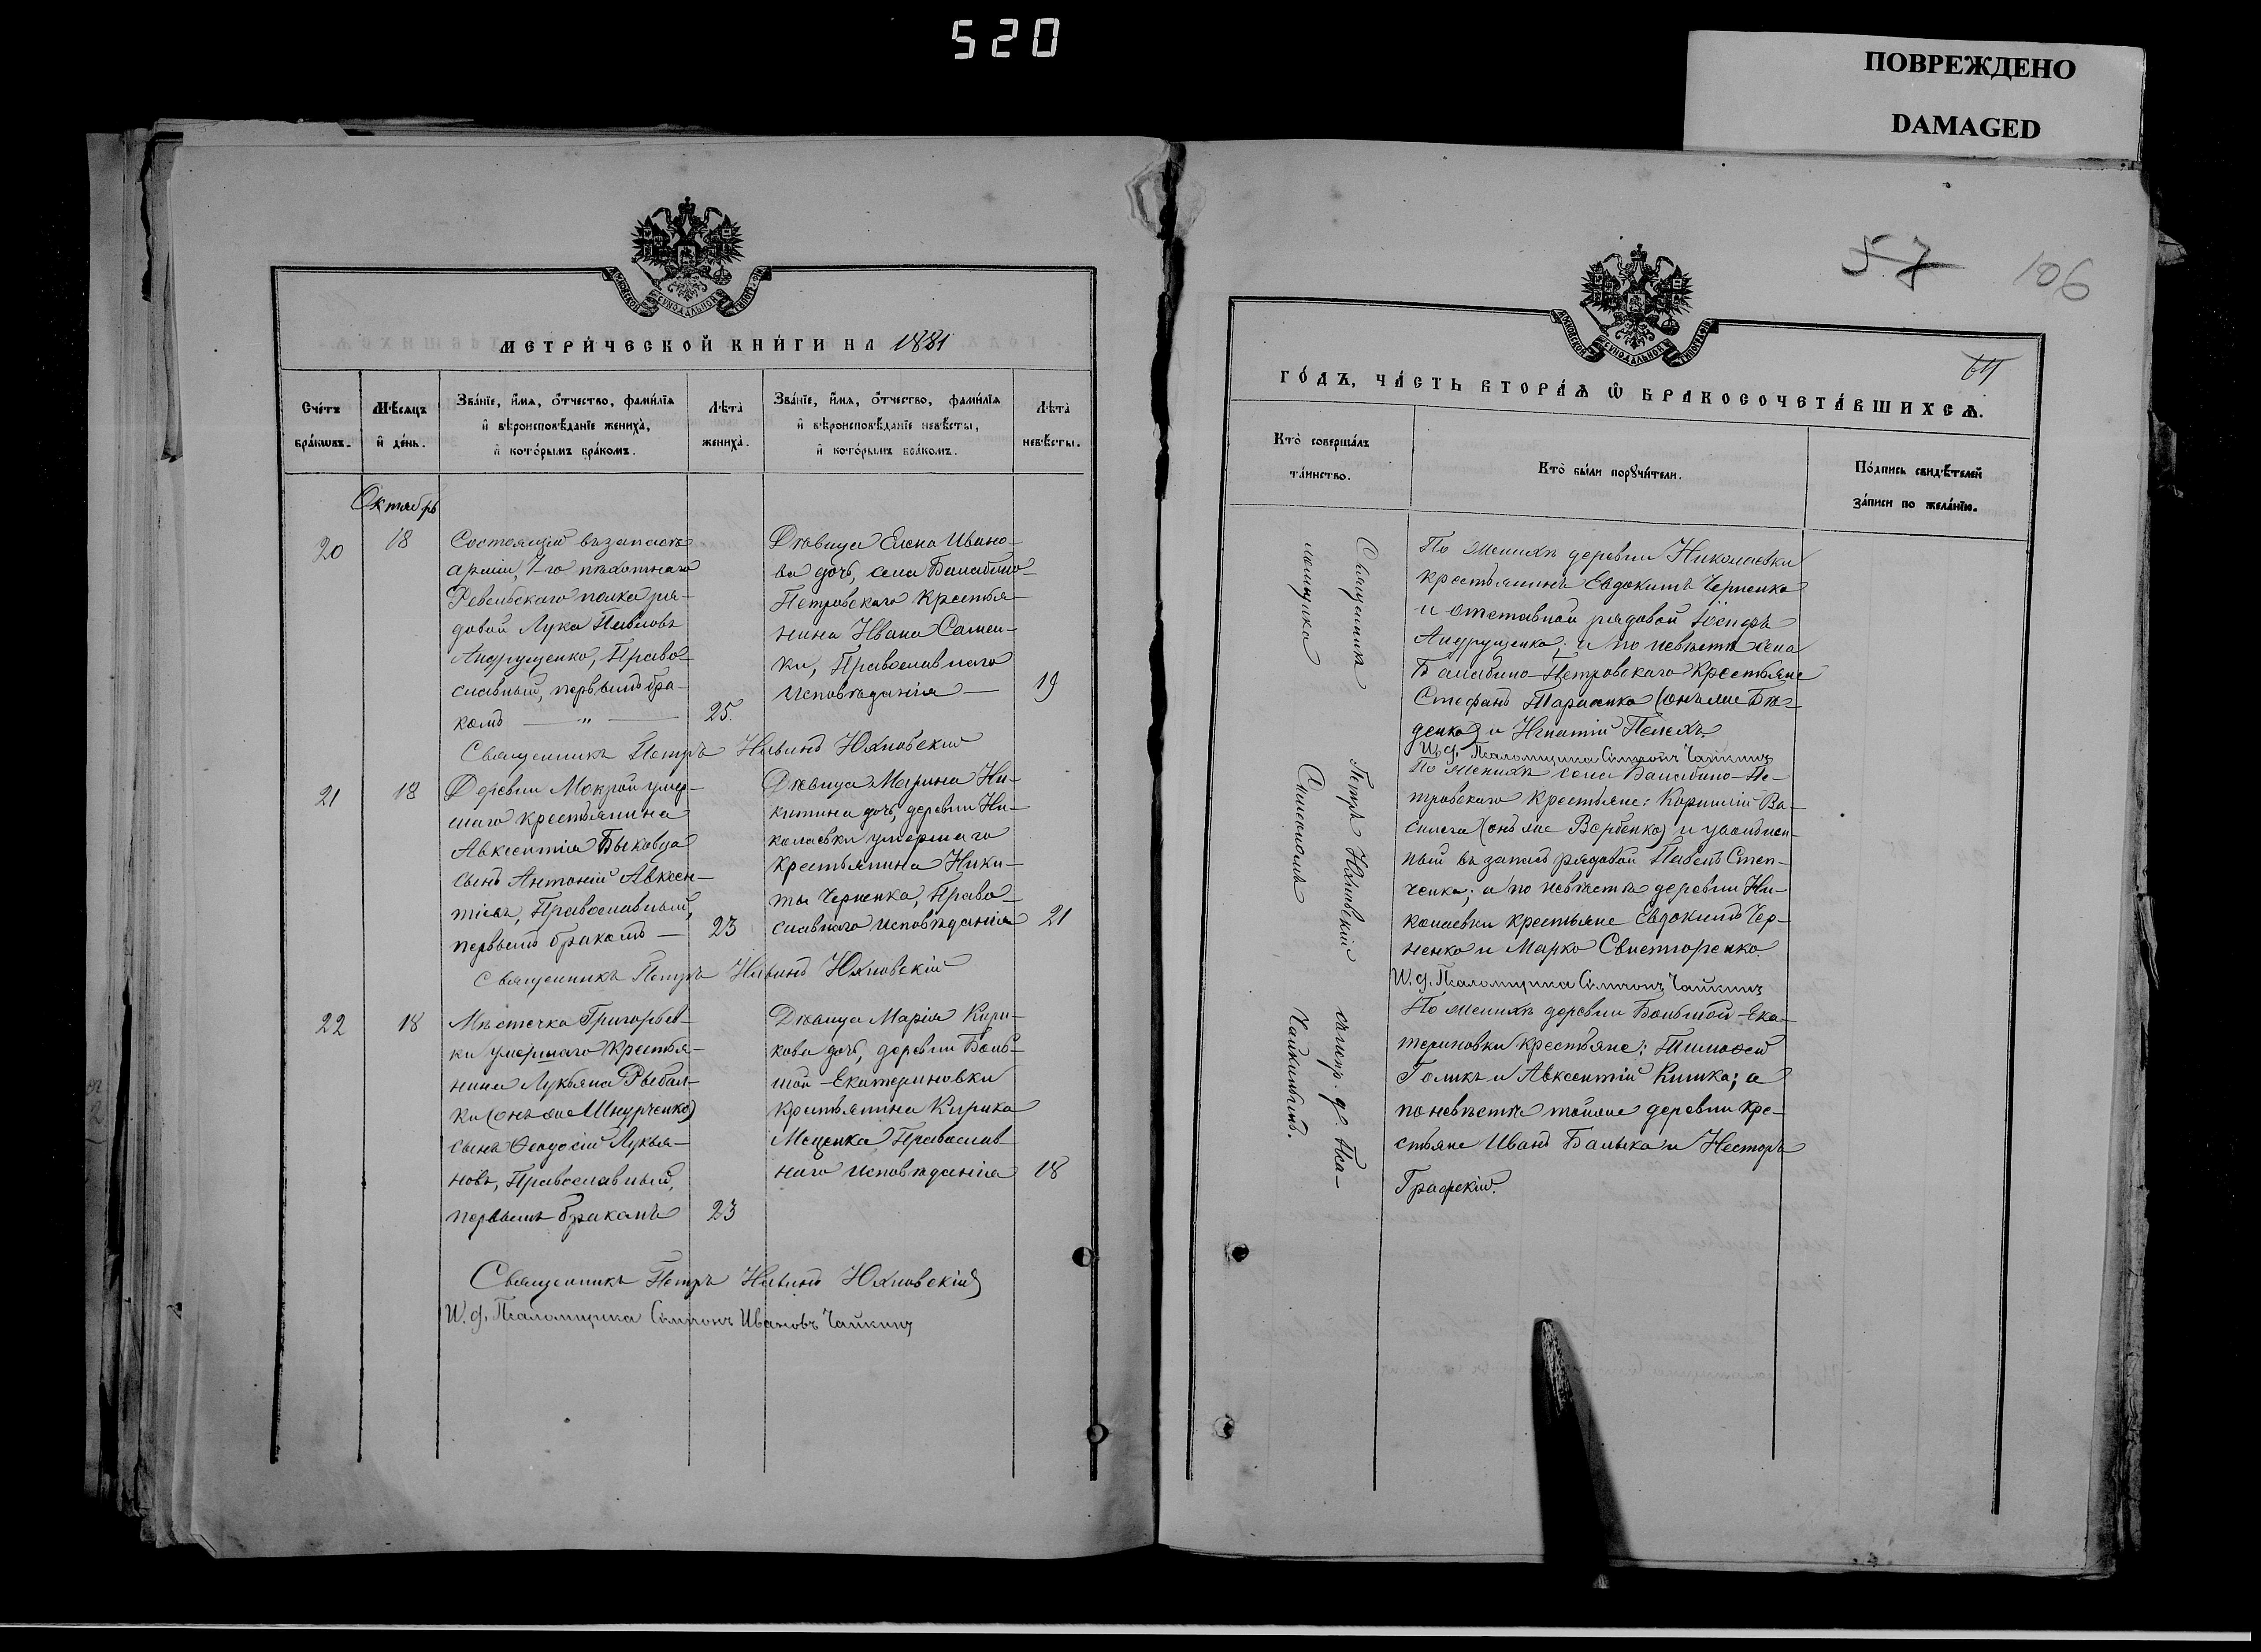 520
ПОВРЕЖДЕНО
DAMAGED
МЕТРИ́ЧЕСКОЙ КНИ́ГИ НА 1881
Сче́тъ бра́ковъ.
Мѣ́сяцъ и҆ де́нь.
Зва́нїе, и҆́мя, ѻ҆́тчество, фами́лїя и҆ вѣроисповѣ́данїе жениха̀, и҆ кото́рымъ бра́комъ.
Лѣта̀ жениха̀.
Зва́нїе, и҆́мя, ѻ҆́тчество, фами́лїя и҆ вѣроисповѣ́данїе невѣ́сты, и҆ кото́рымъ бра́комъ.
Лѣта̀ невѣ́сты.
Октябрь
20
18
Состоящій въ запасѣ
арміи, 7-го пѣхотнаго
Ревельскаго полка ря-
довой Лука Павловъ
Андрущенко, Право-
славный, первымъ бра-
комъ — „ —
25.
Дѣвица Елена Ивано-
ва дочь, села Балабино-
Петровскаго крестья-
нина Ивана Самой-
ки, Православнаго
исповѣданія —
19
Священникъ Петръ Юхновскій
21
18
Деревни Мокрой умер-
шаго крестьянина
Авксентія Быковца
сынъ Антоній Авксен-
тіевъ, Православный,
первымъ бракомъ —
23
Дѣвица Марина Ни-
китина дочь, деревни Ни-
колаевки умершаго
крестьянина Ники-
ты Черненка, Право-
славнаго исповѣданія
21
Священникъ Петръ Юхновскій
22
18
Мѣстечка Григорьев-
ки умершаго крестья-
нина Лукьяна Рыбал-
ки (онъ же Шнурченко)
сынъ Ѳеодосій Лукья-
новъ, Православный,
первымъ бракомъ
23
Дѣвица Марія Кири-
кова дочь, деревни Боль-
шой-Екатериновки
крестьянина Кирика
Моценка Православ-
наго исповѣданія
18
Священникъ Петръ Юхновскій
И. д. Псаломщика Симеонъ Ивановъ Чайкинъ
57
106
ГО́ДЪ, ЧА́СТЬ ВТОРА́Я Ѡ҆ БРАКОСОЧЕТА́ВШИХСЯ.
Кто̀ соверша́лъ та́инство.
Кто̀ бы́ли порꙋчи́тели.
По́дпись свидѣ́телей за́писи по жела́нїю.
Священникъ Петръ Юхновскій съ испр. д. Пса-
ломщика Симеономъ Чайкинымъ.
По женихѣ деревни Николаевки
крестьянинъ Евдокимъ Черненко
и отставной рядовой Іосифъ
Андрущенко; а по невѣстѣ села
Балабино-Петровскаго крестьяне
Стефанъ Тарасенко (онъ же Бѣ-
денко) и Игнатій Пелехъ
И. д. Псаломщика Симеонъ Чайкинъ
По женихѣ села Балабино-Пе-
тровскаго крестьяне: Корнилій Ва-
силега (онъ же Вербенко) и уволен-
ный въ запасъ рядовой Павелъ Степ-
ченко; а по невѣстѣ деревни Ни-
колаевки крестьяне Евдокимъ Чер-
ненко и Марко Свисторенко.
И. д. Псаломщика Симеонъ Чайкинъ
По женихѣ деревни Большой-Ека-
териновки крестьяне: Тимоѳей
Голикъ и Авксентій Кишка; а
по невѣстѣ тойже деревни кре-
стьяне Иванъ Балыка и Несторъ
Графскій.